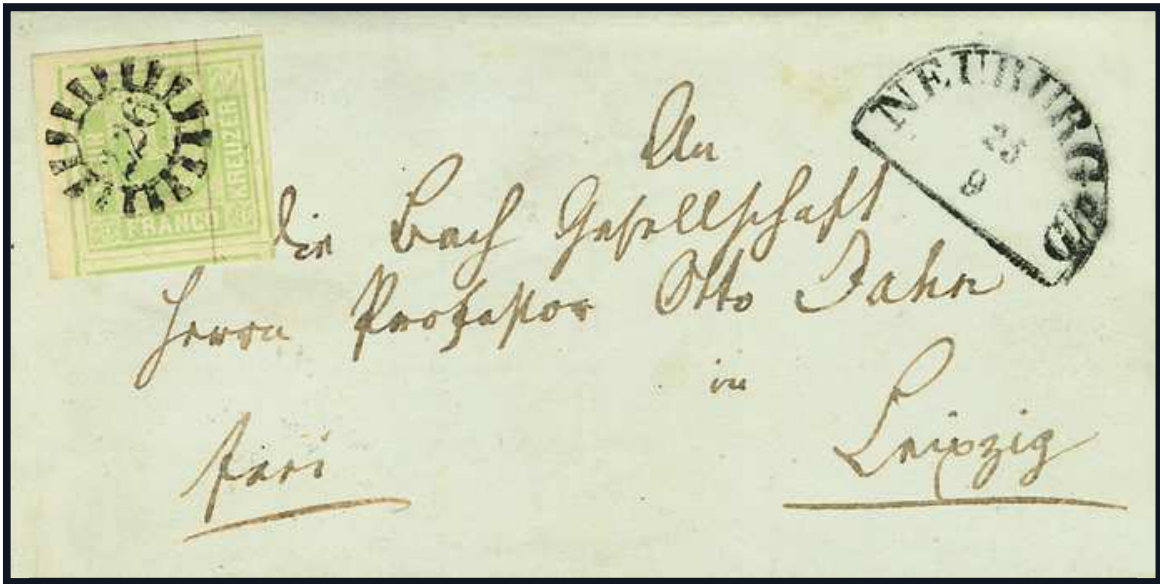 KREUZER
FRANCO
NEUBURG
25
9
An
die Bach Gesellschaft
Herrn Professor Otto Jahn
in
Leipzig
frei